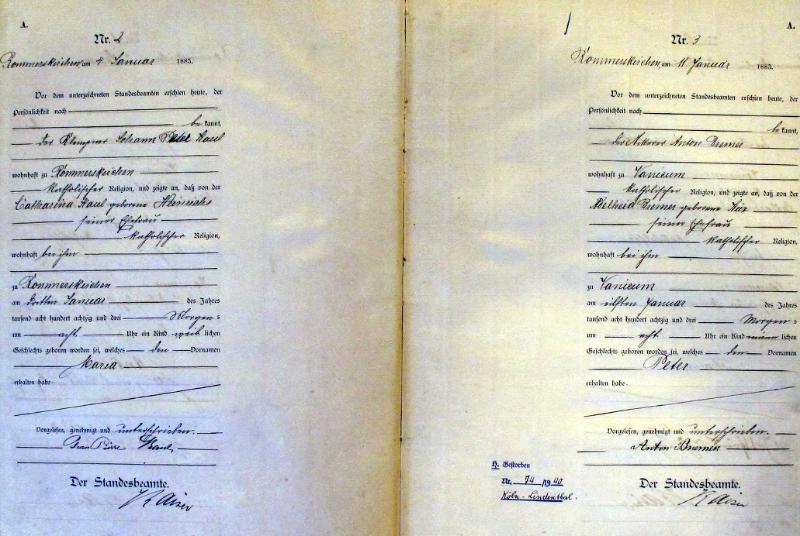 A.
Nr. 2
Rommerskirchen, am 4 Januar 1883.
Vor dem unterzeichneten Standesbeamten erschien heute, der
Persönlichkeit nach
be kannt,
der Klempner Johann Peter
wohnhaft zu Rommerskirchen
katholischer Religion, und zeigte an, daß von der
Catharina geborene
seiner Ehefrau
katholischer Religion,
wohnhaft bei ihm
zu Rommerskirchen
am dritten Januar des Jahres
tausend acht hundert achtzig und drei Morgens
um acht Uhr ein Kind weib lichen
Geschlechts geboren worden sei, welches den Vornamen
Maria
erhalten habe
Vorgelesen, genehmigt und unterschrieben.
Der Standesbeamte.
Kaiser
A.
Nr. 3
Rommerskirchen, am 11 Januar 1883.
Vor dem unterzeichneten Standesbeamten erschien heute, der
Persönlichkeit nach
be kannt,
der Ackerer Anton
wohnhaft zu Vanicum
katholischer Religion, und zeigte an, daß von der
geborene
seiner Ehefrau
katholischer Religion,
wohnhaft bei ihm
zu Vanicum
am elften Januar des Jahres
tausend acht hundert achtzig und drei Morgens
um acht Uhr ein Kind männ lichen
Geschlechts geboren worden sei, welches den Vornamen
Peter
erhalten habe
Vorgelesen, genehmigt und unterschrieben.
Anton
Der Standesbeamte.
Kaiser
Gestorben
Nr. 74 /1940
Köln-Lindenthal.